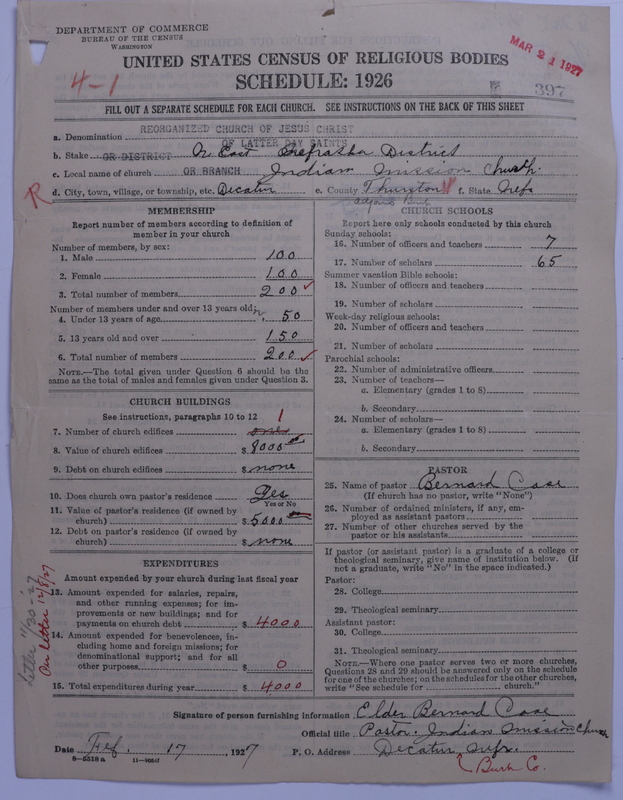 DEPARTMENT OF COMMERCE
BUREAU OF THE CENSUS
WASHINGTON
MAR 21 1927
UNITED STATES CENSUS OF RELIGIOUS BODIES
4-1
SCHEDULE: 1926
397
FILL OUT A SEPARATE SCHEDULE FOR EACH CHURCH. SEE INSTRUCTIONS ON THE BACK OF THIS SHEET
a. Denomination REORGANIZED CHURCH OF JESUS CHRIST
OF LATTER DAY SAINTS
b. Stake OR DISTRICT N. East Nebraska District
c. Local name of church OR BRANCH Indian Mission Church.
R d. City, town, village, or township, etc. Decatur e. County Thurston f. State Nebr
adjoins Burt
MEMBERSHIP
Report number of members according to definition of
member in your church
Number of members, by sex:
1. Male 100
2. Female 100
3. Total number of members 200
Number of members under and over 13 years old:
4. Under 13 years of age 50
5. 13 years old and over 150
6. Total number of members 200
NOTE.—The total given under Question 6 should be the
same as the total of males and females given under Question 3.
CHURCH BUILDINGS
See instructions, paragraphs 10 to 12
7. Number of church edifices one 1
8. Value of church edifices $8000
9. Debt on church edifices $ none
10. Does church own pastor's residence Yes
Yes or No
11. Value of pastor's residence (if owned by
church) $5000
12. Debt on pastor's residence (if owned by
church) $ none
EXPENDITURES
Amount expended by your church during last fiscal year
13. Amount expended for salaries, repairs,
and other running expenses; for im-
provements or new buildings; and for
payments on church debt $ 4000
14. Amount expended for benevolences, in-
cluding home and foreign missions; for
denominational support; and for all
other purposes $ 0
15. Total expenditures during year $ 4000
Letter 11/30-27
Our letter 12/1/27
CHURCH SCHOOLS
Report here only schools conducted by this church
Sunday schools:
16. Number of officers and teachers 7
17. Number of scholars 65
Summer vacation Bible schools:
18. Number of officers and teachers
19. Number of scholars
Week-day religious schools:
20. Number of officers and teachers
21. Number of scholars
Parochial schools:
22. Number of administrative officers
23. Number of teachers—
a. Elementary (grades 1 to 8)
b. Secondary
24. Number of scholars—
a. Elementary (grades 1 to 8)
b. Secondary
PASTOR
25. Name of pastor Bernard Case
(If church has no pastor, write "None")
26. Number of ordained ministers, if any, em-
ployed as assistant pastors
27. Number of other churches served by the
pastor or his assistants
If pastor (or assistant pastor) is a graduate of a college or
theological seminary, give name of institution below. (If
not a graduate, write "No" in the space indicated.)
Pastor:
28. College
29. Theological seminary
Assistant pastor:
30. College
31. Theological seminary
NOTE.—Where one pastor serves two or more churches,
Questions 28 and 29 should be answered only on the schedule
for one of the churches; on the schedules for the other churches,
write "See schedule for church."
Signature of person furnishing information Elder Bernard Case
Official title Pastor. Indian Mission Church
Date Feb. 17, 1927 P. O. Address Decatur Nebr.
8—5518a
Burt Co.